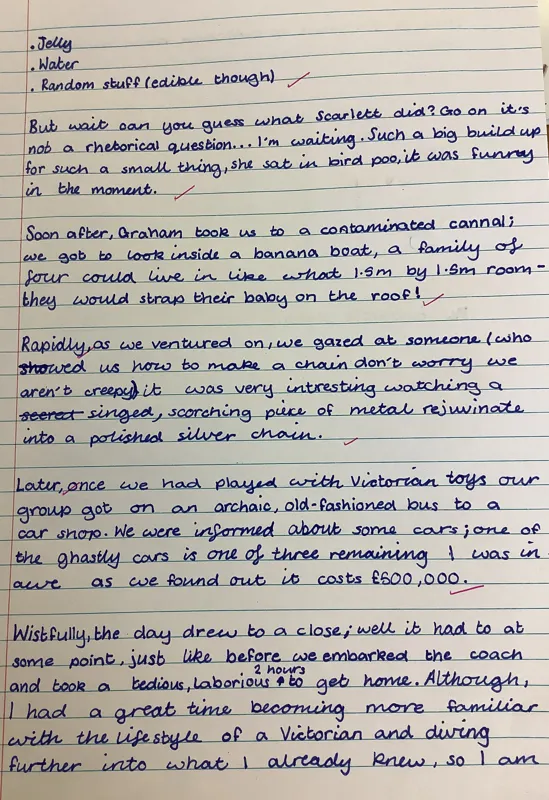 . Jelly
. Water
. Random stuff (edible though)
But wait can you guess what Scarlett did? Go on it's
not a rhetorical question... I'm waiting. Such a big build up
for such a small thing, she sat in bird poo, it was funny
in the moment.
Soon after, Graham took us to a contaminated cannal;
we got to look inside a banana boat, a family of
four could live in like what 1.5m by 1.5m room-
they would strap their baby on the roof!
Rapidly, as we ventured on, we gazed at someone (who
showed us how to make a chain don't worry we
aren't creepy) it was very intresting watching a
singed, scorching piece of metal rejuvinate
into a polished silver chain.
Later, once we had played with Victorian toys our
group got on an archaic, old-fashioned bus to a
car shop. We were informed about some cars; one of
the ghastly cars is one of three remaining I was in
awe as we found out it costs £500,000.
Wistfully, the day drew to a close; well it had to at
some point, just like before we embarked the coach
and took a tedious, laborious 2 hours to get home. Although,
I had a great time becoming more familiar
with the lifestyle of a Victorian and diving
further into what I already knew, so I am